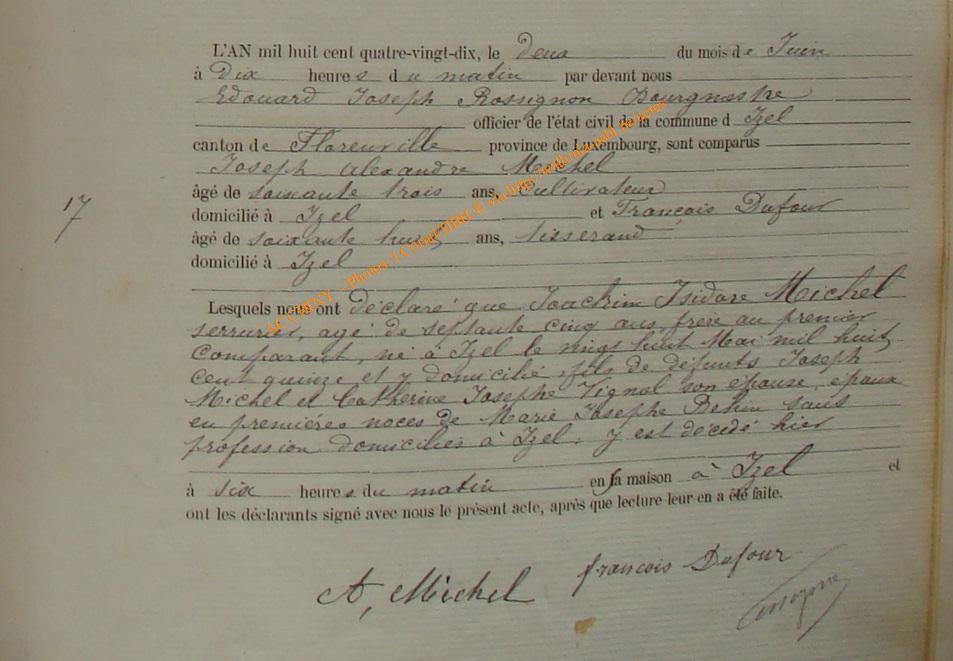 L'AN mil huit cent quatre-vingt-dix, le deux du mois de Juin
à Dix heures du matin par devant nous
Edouard Joseph Rossignon Bourgmestre
officier de l'état civil de la commune d Izel
canton de Florenville province de Luxembourg, sont comparus
Joseph Alexandre Michel
âgé de soixante trois ans, Cultivateur
17
domicilié à Izel et François Dufour
âgé de soixante huit ans, tisserand
domicilié à Izel
Lesquels nous ont déclaré que Joachim Isidore Michel
serrurier, agé de septante cinq ans, frère au premier
Comparant, né à Izel le vingt huit Mai mil huit
cent quinze et y domicilié, fils de défunts Joseph
Michel et Catherine Josephe Vignol son épouse, époux
en premières noces de Marie Josephe Behin sans
profession domiciliés à Izel. y est décédé hier
à six heures du matin en sa maison à Izel et
ont les déclarants signé avec nous le présent acte, après que lecture leur en a été faite.
A, Michel françois Dufour